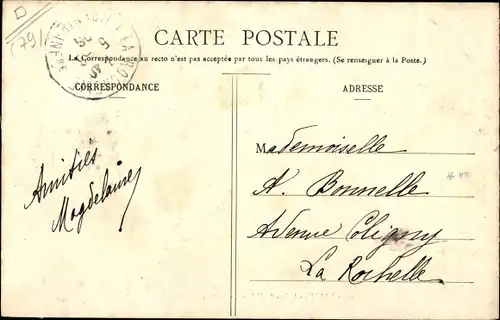 D
79
CARTE POSTALE
La Correspondance au recto n'est pas acceptée par tous les pays étrangers. (Se renseigner à la Poste.)
CORRESPONDANCE
ADRESSE
Amitiés
Magdelaine
Mademoiselle
A. Bonnelle
Avenue Coligny
La Rochelle